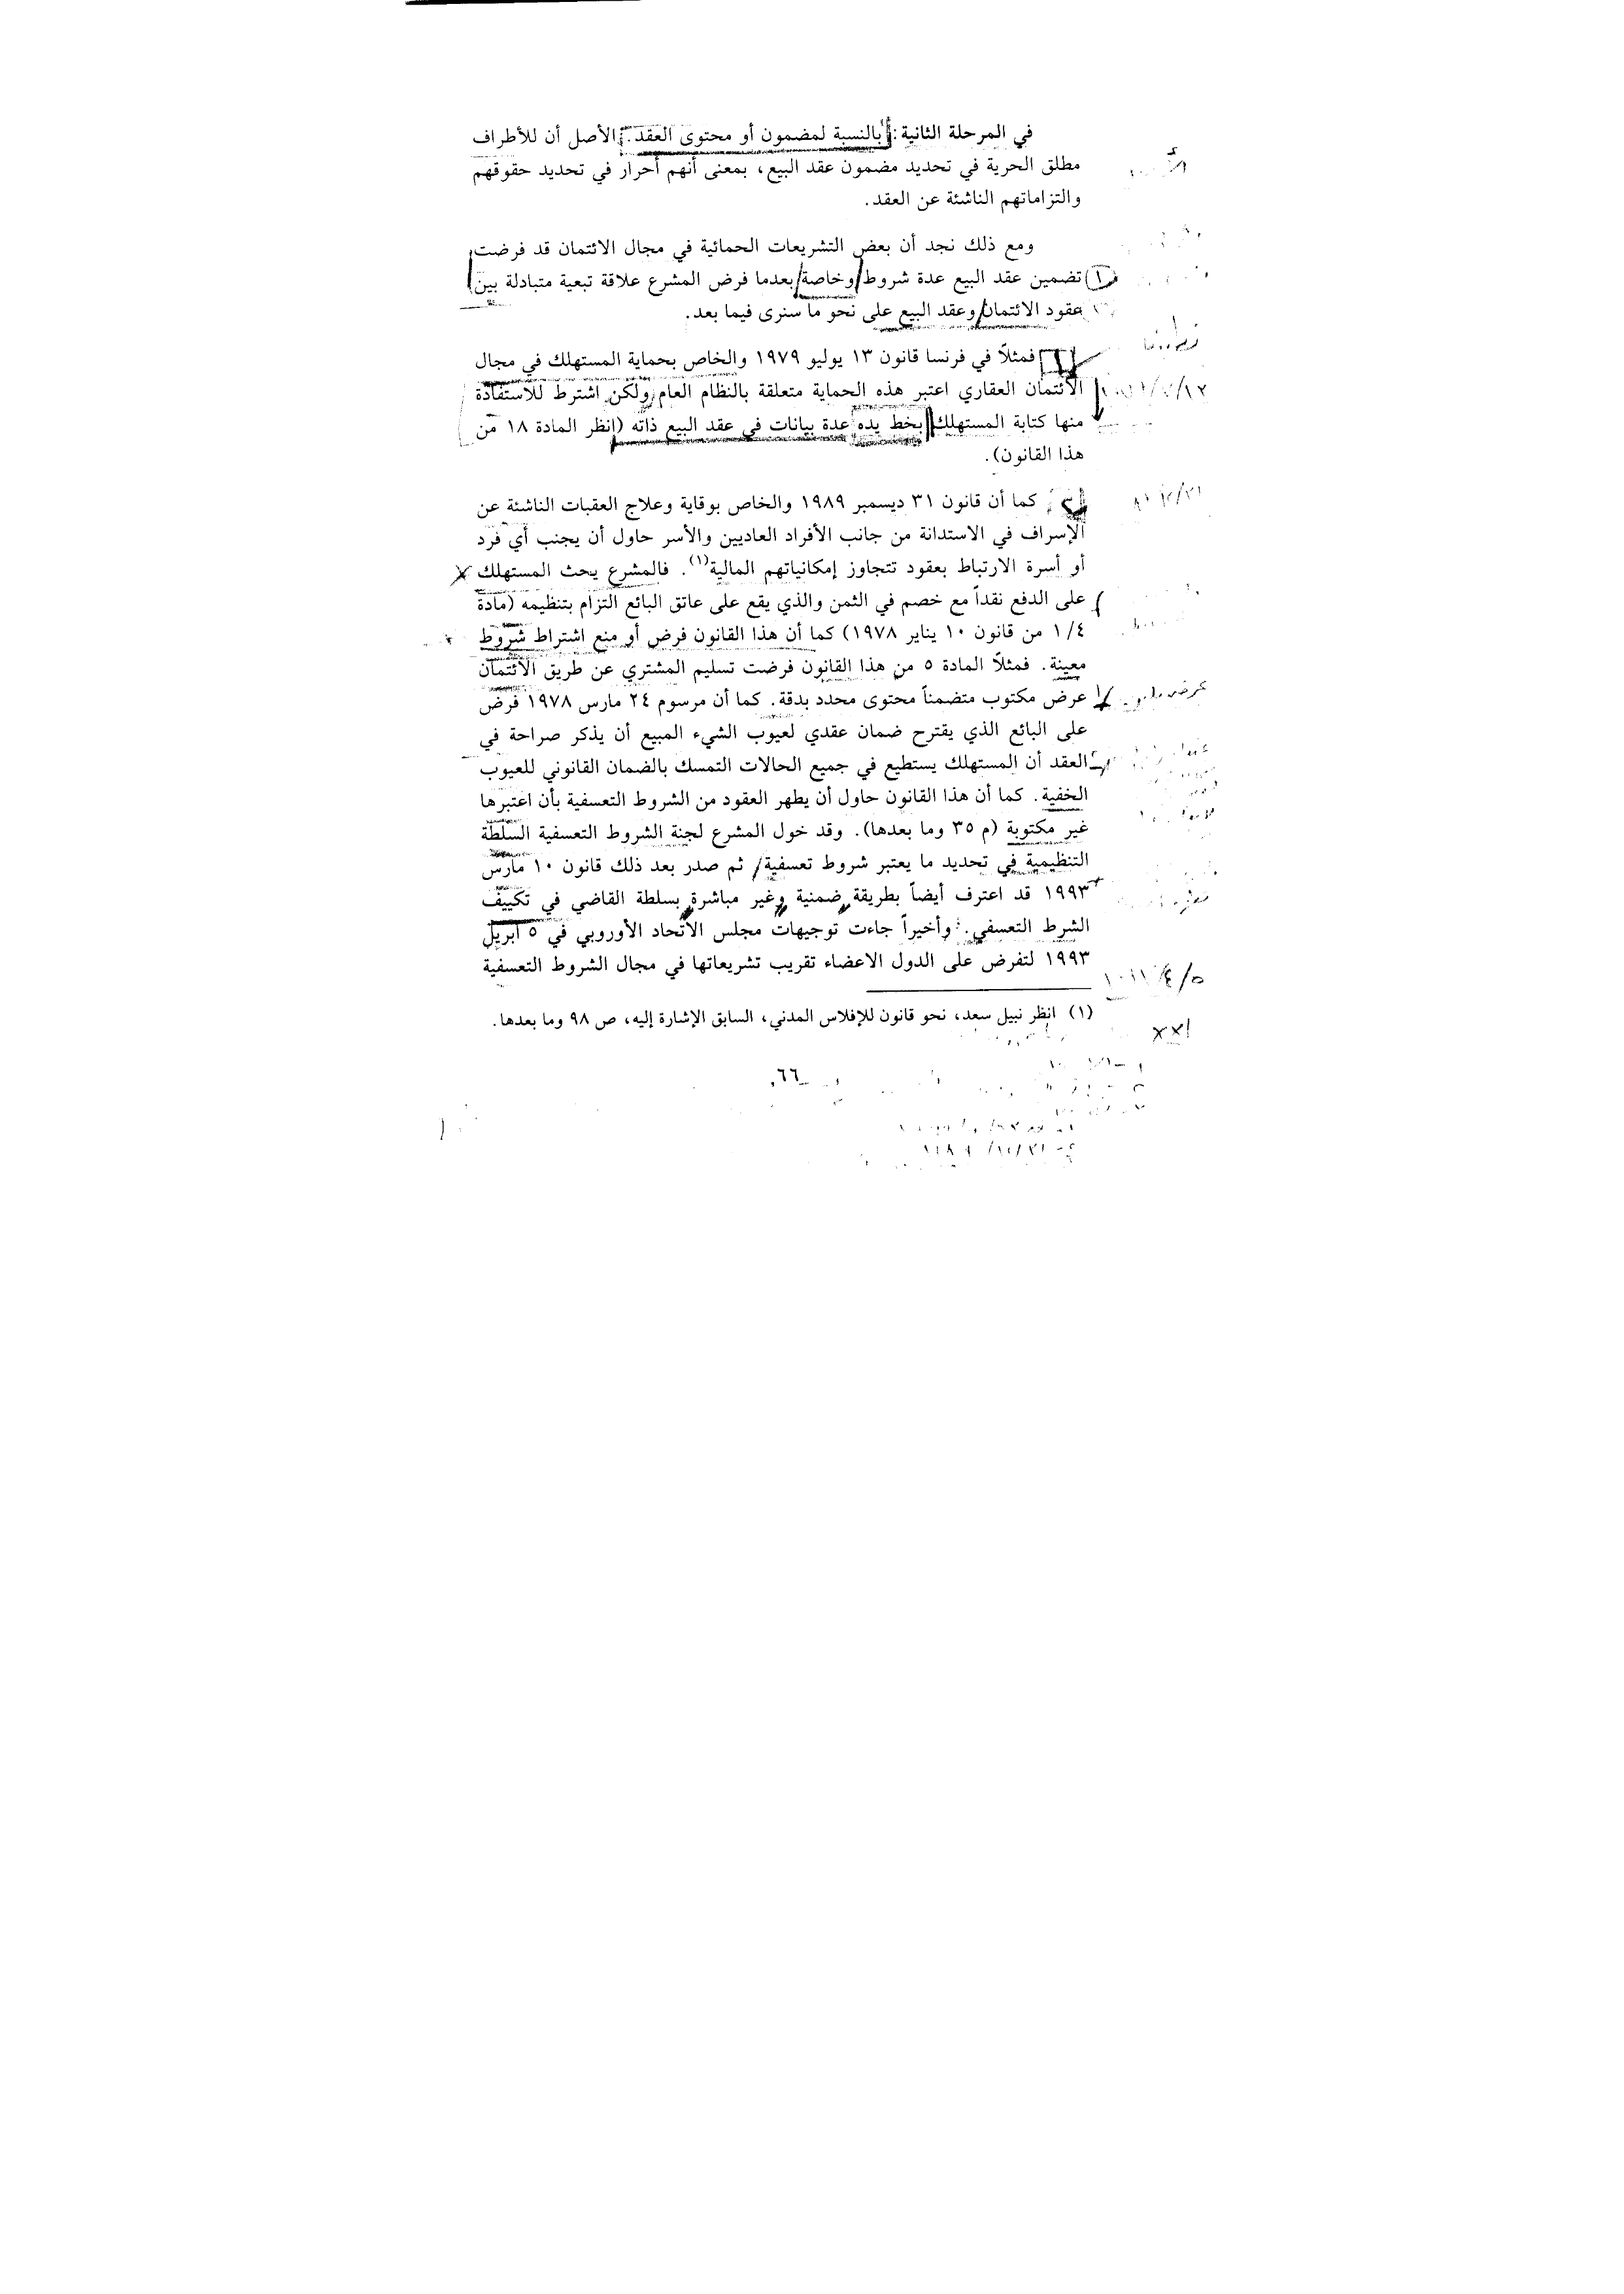 في المرحلة الثانية: بالنسبة لمضمون أو محتوى العقد. الأصل أن للأطراف
مطلق الحرية في تحديد مضمون عقد البيع، بمعنى أنهم أحرار في تحديد حقوقهم
والتزاماتهم الناشئة عن العقد.
ومع ذلك نجد أن بعض التشريعات الحمائية في مجال الائتمان قد فرضت
تضمين عقد البيع عدة شروط وخاصة بعدما فرض المشرع علاقة تبعية متبادلة بين
عقود الائتمان وعقد البيع على نحو ما سنرى فيما بعد.
فمثلاً في فرنسا قانون ١٣ يوليو ١٩٧٩ والخاص بحماية المستهلك في مجال
الائتمان العقاري اعتبر هذه الحماية متعلقة بالنظام العام ولكن اشترط للاستفادة
منها كتابة المستهلك بخط يده عدة بيانات في عقد البيع ذاته (انظر المادة ١٨ من
هذا القانون).
كما أن قانون ٣١ ديسمبر ١٩٨٩ والخاص بوقاية وعلاج العقبات الناشئة عن
الإسراف في الاستدانة من جانب الأفراد العاديين والأسر حاول أن يجنب أي فرد
أو أسرة الارتباط بعقود تتجاوز إمكانياتهم المالية(١). فالمشرع يحث المستهلك
على الدفع نقداً مع خصم في الثمن والذي يقع على عاتق البائع التزام بتنظيمه (مادة
١/٤ من قانون ١٠ يناير ١٩٧٨) كما أن هذا القانون فرض أو منع اشتراط شروط
معينة. فمثلاً المادة ٥ من هذا القانون فرضت تسليم المشتري عن طريق الائتمان
عرض مكتوب متضمناً محتوى محدد بدقة. كما أن مرسوم ٢٤ مارس ١٩٧٨ فرض
على البائع الذي يقترح ضمان عقدي لعيوب الشيء المبيع أن يذكر صراحة في
العقد أن المستهلك يستطيع في جميع الحالات التمسك بالضمان القانوني للعيوب
الخفية. كما أن هذا القانون حاول أن يطهر العقود من الشروط التعسفية بأن اعتبرها
غير مكتوبة (م ٣٥ وما بعدها). وقد خول المشرع لجنة الشروط التعسفية السلطة
التنظيمية في تحديد ما يعتبر شروط تعسفية ثم صدر بعد ذلك قانون ١٠ مارس
١٩٩٣ قد اعترف أيضاً بطريقة ضمنية وغير مباشرة بسلطة القاضي في تكييف
الشرط التعسفي. وأخيراً جاءت توجيهات مجلس الاتحاد الأوروبي في ٥ أبريل
١٩٩٣ لتفرض على الدول الاعضاء تقريب تشريعاتها في مجال الشروط التعسفية
(١) انظر نبيل سعد، نحو قانون للإفلاس المدني، السابق الإشارة إليه، ص ٩٨ وما بعدها.
٦٦